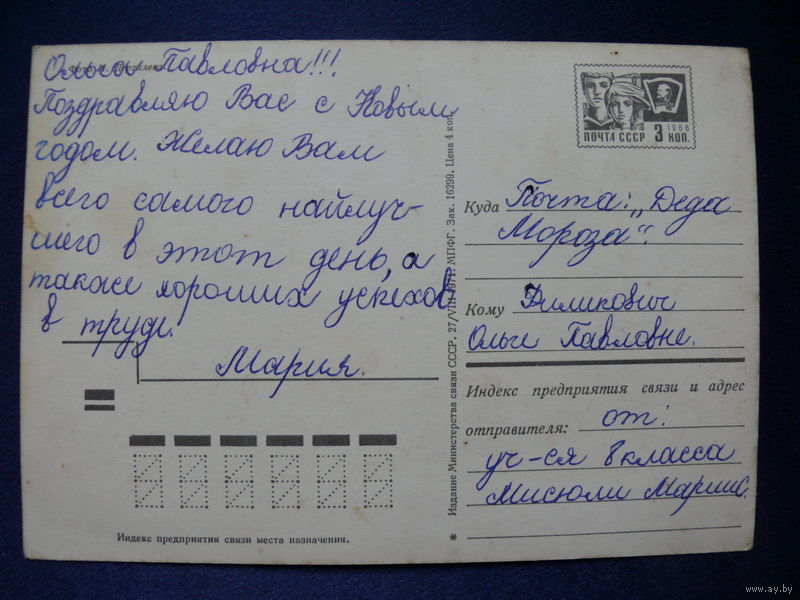 Ольга Павловна!!!
Поздравляю Вас с Новым
годом. Желаю Вам
всего самого найлуч-
шего в этот день, а
также хороших успехов
в труде.
Мария.
Индекс предприятия связи места назначения.
Издание Министерства связи СССР. 27/VIII-1971. МПФГ. Зак. 16299. Цена 4 коп.
1966
ПОЧТА СССР 3 КОП.
Куда Почта: „Деда
Мороза“.
Кому Филикович
Ольге Павловне.
Индекс предприятия связи и адрес
отправителя: от:
уч-ся 8 класса
Мисюли Марии.
*
www.ay.by